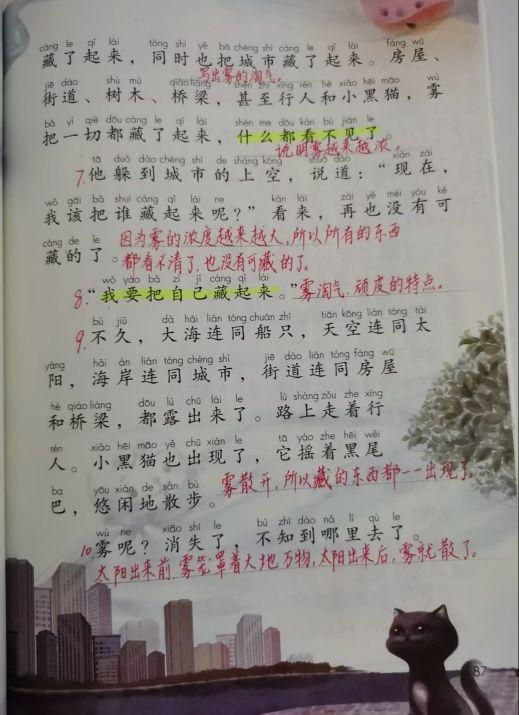 cáng le qǐ lái tóng shí yě bǎ chéng shì cáng le qǐ lái fáng wū
藏了起来，同时也把城市藏了起来。房屋、
写出雾的淘气。
jiē dào shù mù qiáo liáng shèn zhì xíng rén hé xiǎo hēi māo wù
街道、树木、桥梁，甚至行人和小黑猫，雾
bǎ yí qiè dōu cáng le qǐ lái shén me dōu kàn bú jiàn le
把一切都藏了起来，什么都看不见了。
说明雾越来越浓。
tā duǒ dào chéng shì de shàng kōng shuō dào xiàn zài
7.他躲到城市的上空，说道：“现在，
wǒ gāi bǎ shuí cáng qǐ lái ne kàn lái zài yě méi yǒu kě
我该把谁藏起来呢？”看来，再也没有可
cáng de le
藏的了。因为雾的浓度越来越大，所以所有的东西
都看不清了，也没有可藏的了。
wǒ yào bǎ zì jǐ cáng qǐ lái
8.“我要把自己藏起来。”雾淘气、顽皮的特点。
bù jiǔ dà hǎi lián tóng chuán zhī tiān kōng lián tóng tài
9.不久，大海连同船只，天空连同太
yáng hǎi àn lián tóng chéng shì jiē dào lián tóng fáng wū
阳，海岸连同城市，街道连同房屋
hé qiáo liáng dōu lù chū lái le lù shàng zǒu zhe xíng
和桥梁，都露出来了。路上走着行
rén xiǎo hēi māo yě chū xiàn le tā yáo zhe hēi wěi
人。小黑猫也出现了，它摇着黑尾
ba yōu xián de sàn bù
巴，悠闲地散步。雾散开，所以藏的东西都一一出现了。
wù ne xiāo shī le bù zhī dào nǎ lǐ qù le
10.雾呢？消失了，不知到哪里去了。
太阳出来前，雾笼罩着大地万物，太阳出来后，雾就散了。
87